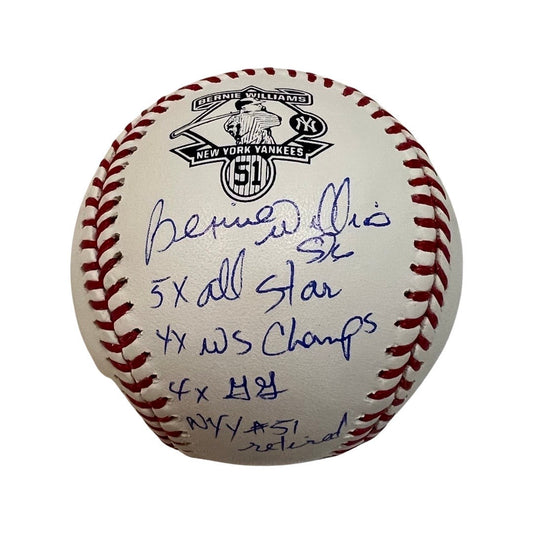 BERNIE WILLIAMS
NY
NEW YORK YANKEES
51
Bernie Williams
51
5x all Star
4x WS Champs
4x GG
NYY #51
retired